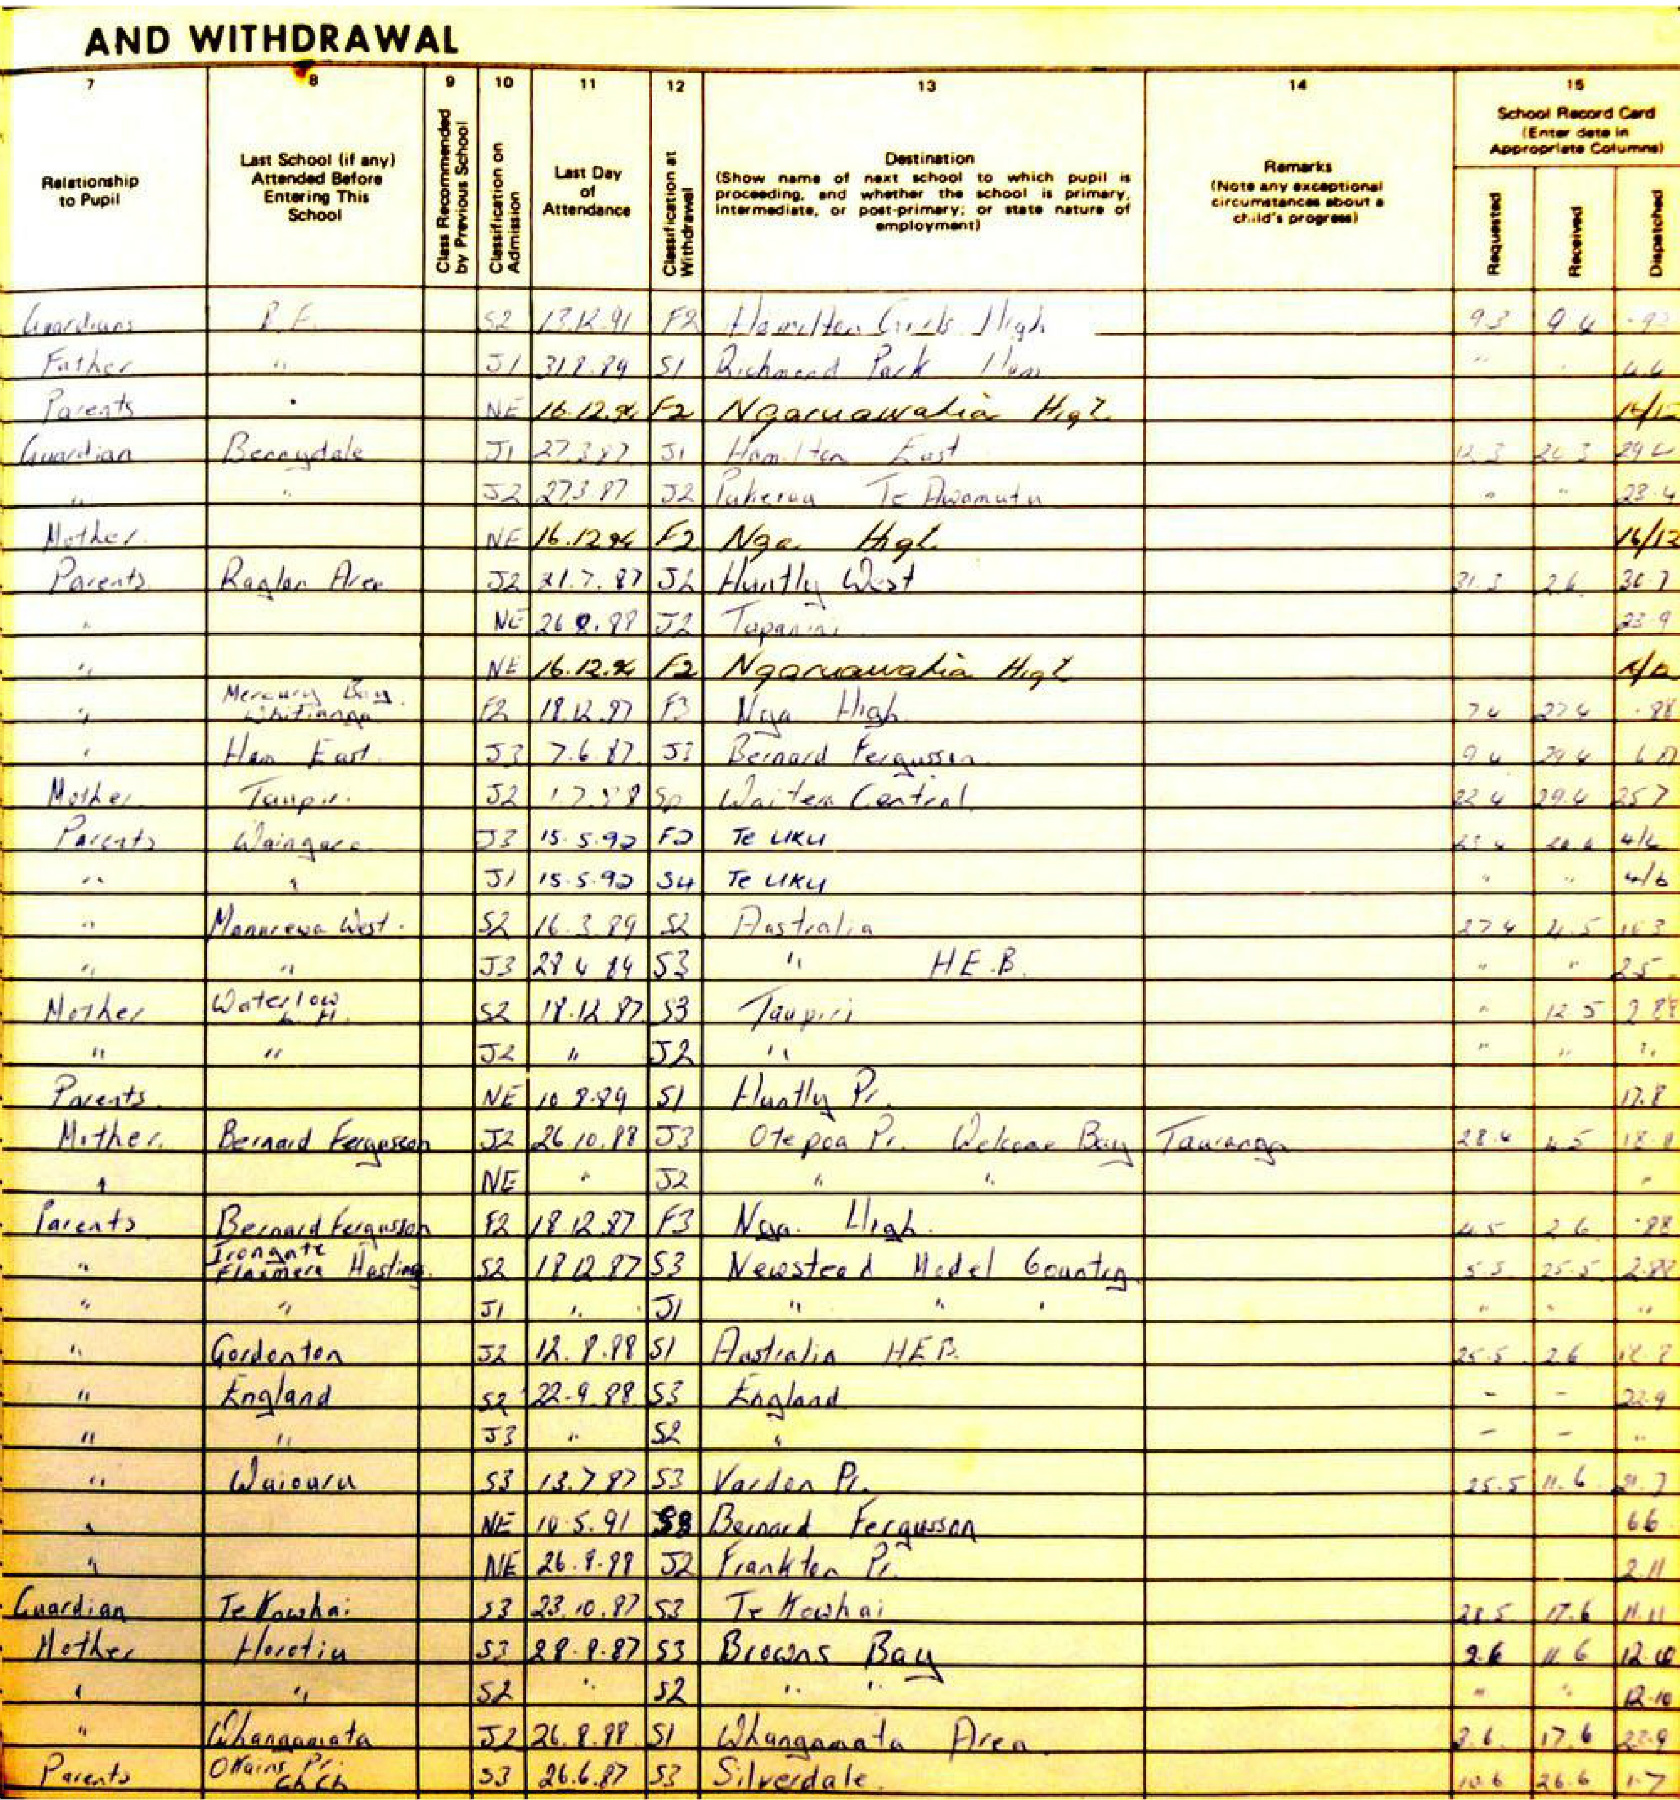 AND WITHDRAWAL
7 8 9 10 11 12 13 14 15
Relationship to Pupil
Last School (if any) Attended Before Entering This School
Class Recommended by Previous School
Classification on Admission
Last Day of Attendance
Classification at Withdrawal
Destination
(Show name of next school to which pupil is proceeding, and whether the school is primary, intermediate, or post-primary; or state nature of employment)
Remarks
(Note any exceptional circumstances about a child's progress)
School Record Card
(Enter date in Appropriate Columns)
Requested Received Dispatched
Guardians S2 13.12.91 F2 Hamilton Girls High 9.3 9.4
Father " J1 31.8.89 S1 Richmond Park Ham "
Parents " NE 16.12.94 F2 Ngaruawahia High
Guardian Bennydale J1 27.3.87 J1 Hamilton East
" " J2 27.3.87 J2 Te Awamutu " " 23.4
Mother NE 16.12.94 F2 Nga High 16/12
Parents Raglan Area J2 21.7.87 J2 Huntly West 31.3 2.6 30.7
" NE 26.8.88 J2 23.9
" NE 16.12.94 F2 Ngaruawahia High
" Mercury Bay Whitianga F2 18.12.87 F3 Nga High 7.4 27.4 .88
" Ham East J3 7.6.87 J3 Bernard Fergusson 9.4 29.4
Mother Taupiri J2 1.7.88 Sp Waitara Central 22.4 29.4 25.7
Parents Waingaro J3 15.5.92 F2 Te UKU 4/6
" " J1 15.5.92 S4 Te UKU " " 4/6
" Manurewa West S2 16.3.89 S2 Australia 27.4 4.5
" " J3 28.4.89 S3 " H.E.B. " " 2.5
Mother Waterlow L.H. S2 18.12.87 S3 Taupiri " 12.5 2.88
" " J2 " J2 " " " "
Parents NE 10.8.89 S1 Huntly Pr. 17.8
Mother Bernard Fergusson J2 26.10.88 J3 Otepoa Pr. Welcome Bay Tauranga 28.4 4.5
" NE " J2 " " "
Parents Bernard Fergusson F2 18.12.87 F3 Nga. High 4.5 2.6 .88
" Irongate Flaxmere Hastings S2 18.12.87 S3 Newstead Model Country 5.5 25.5 2.88
" " J1 " J1 " " " " " "
" Gordonton J2 12.8.88 S1 Australia H.E.B. 25.5 2.6
" England S2 22.9.88 S3 England - - 22.9
" " J3 " S2 " - - "
" Waiouru S3 13.7.87 S3 Vardon Pr. 25.5 11.6
" NE 10.5.91 S3 Bernard Fergusson 6.6
" NE 26.8.88 J2 Frankton Pr. 2.11
Guardian Te Kowhai S3 23.10.87 S3 Te Kowhai 28.5 17.6 11.11
Mother Horotiu S3 28.8.87 S3 Browns Bay 2.6 11.6 12.10
" " S2 " S2 " " " " 12.10
" Whangamata J2 26.8.88 S1 Whangamata Area 2.6 17.6 22.9
Parents Okains Pr. Ch Ch S3 26.6.87 S3 Silverdale 10.6 26.6 1.7